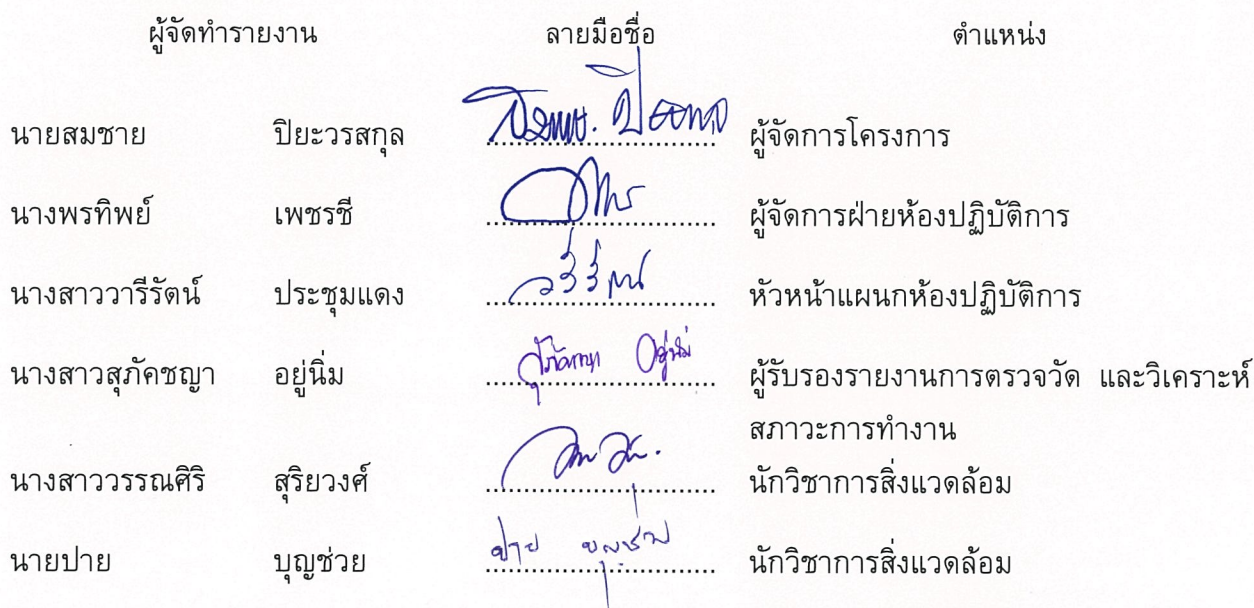 ผู้จัดทำรายงาน ลายมือชื่อ ตำแหน่ง
นายสมชาย ปิยะวรสกุล ผู้จัดการโครงการ
นางพรทิพย์ เพชรชี ผู้จัดการฝ่ายห้องปฏิบัติการ
นางสาววารีรัตน์ ประชุมแดง หัวหน้าแผนกห้องปฏิบัติการ
นางสาวสุภัคชญา อยู่นิ่ม ผู้รับรองรายงานการตรวจวัด และวิเคราะห์
สภาวะการทำงาน
นางสาววรรณศิริ สุริยวงศ์ นักวิชาการสิ่งแวดล้อม
นายปาย บุญช่วย ปาย บุญช่วย นักวิชาการสิ่งแวดล้อม